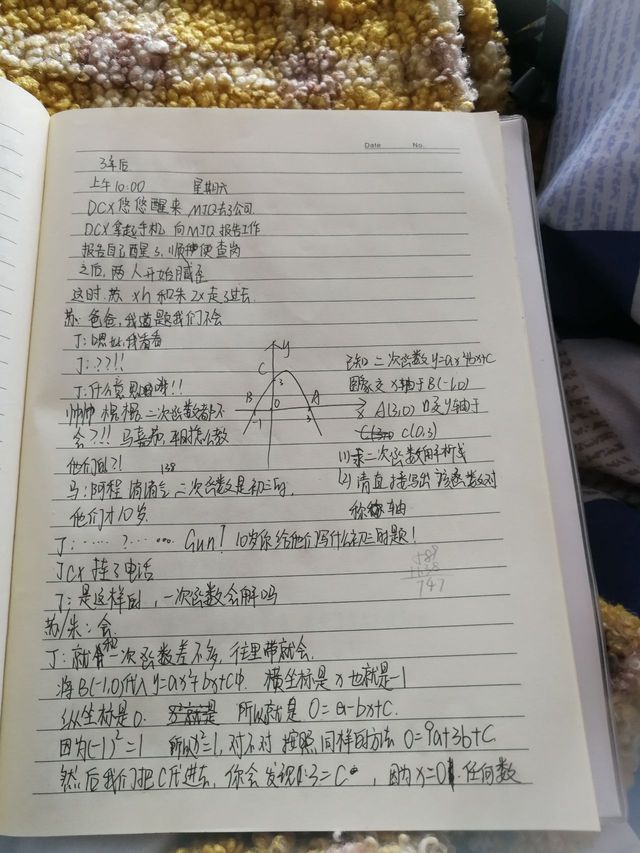 Date No.
3年后
上午10:00 星期六
DCX悠悠醒来 MJQ去了公司.
DCX拿起手机 向MJQ报告工作
报告自己醒了,顺便查岗
之后,两人开始腻歪
这时 苏xh和朱zx走了过去.
苏:爸爸,我道题我们不会
J:嗯,我看看
J:??!!
J:什么意思!!
帅帅 二次函数都不
会?!! 马嘉 平时怎么教
他们的?!
138
马:阿程 消消气,二次函数是初三的,
他们才10岁.
y
C
3
B
A
0
-1
3
x
已知二次函数y=ax²+bx+c
图象交x轴于B(-1,0)
A(3,0) 交y轴于
C(0,3)
(1)求二次函数的解析式
(2)请直接写出该函数对
称轴
J:……?…… Gun!10岁你给他们写什么初三的题!
589
+138
747
JCX挂了电话
J:是这样的,一次函数会解吗
苏/朱:会
J:就和一次函数差不多,往里带就会.
将B(-1,0)代入y=ax²+bx+c中. 横坐标是x也就是-1
纵坐标是0. 所以就是 0=a-bx+c.
因为(-1)²=1 所以x²=1,对不对 按照同样的方法 0=9a+3b+c
然后我们把C代进去,你会发现:3=c,因为x=0.任何数